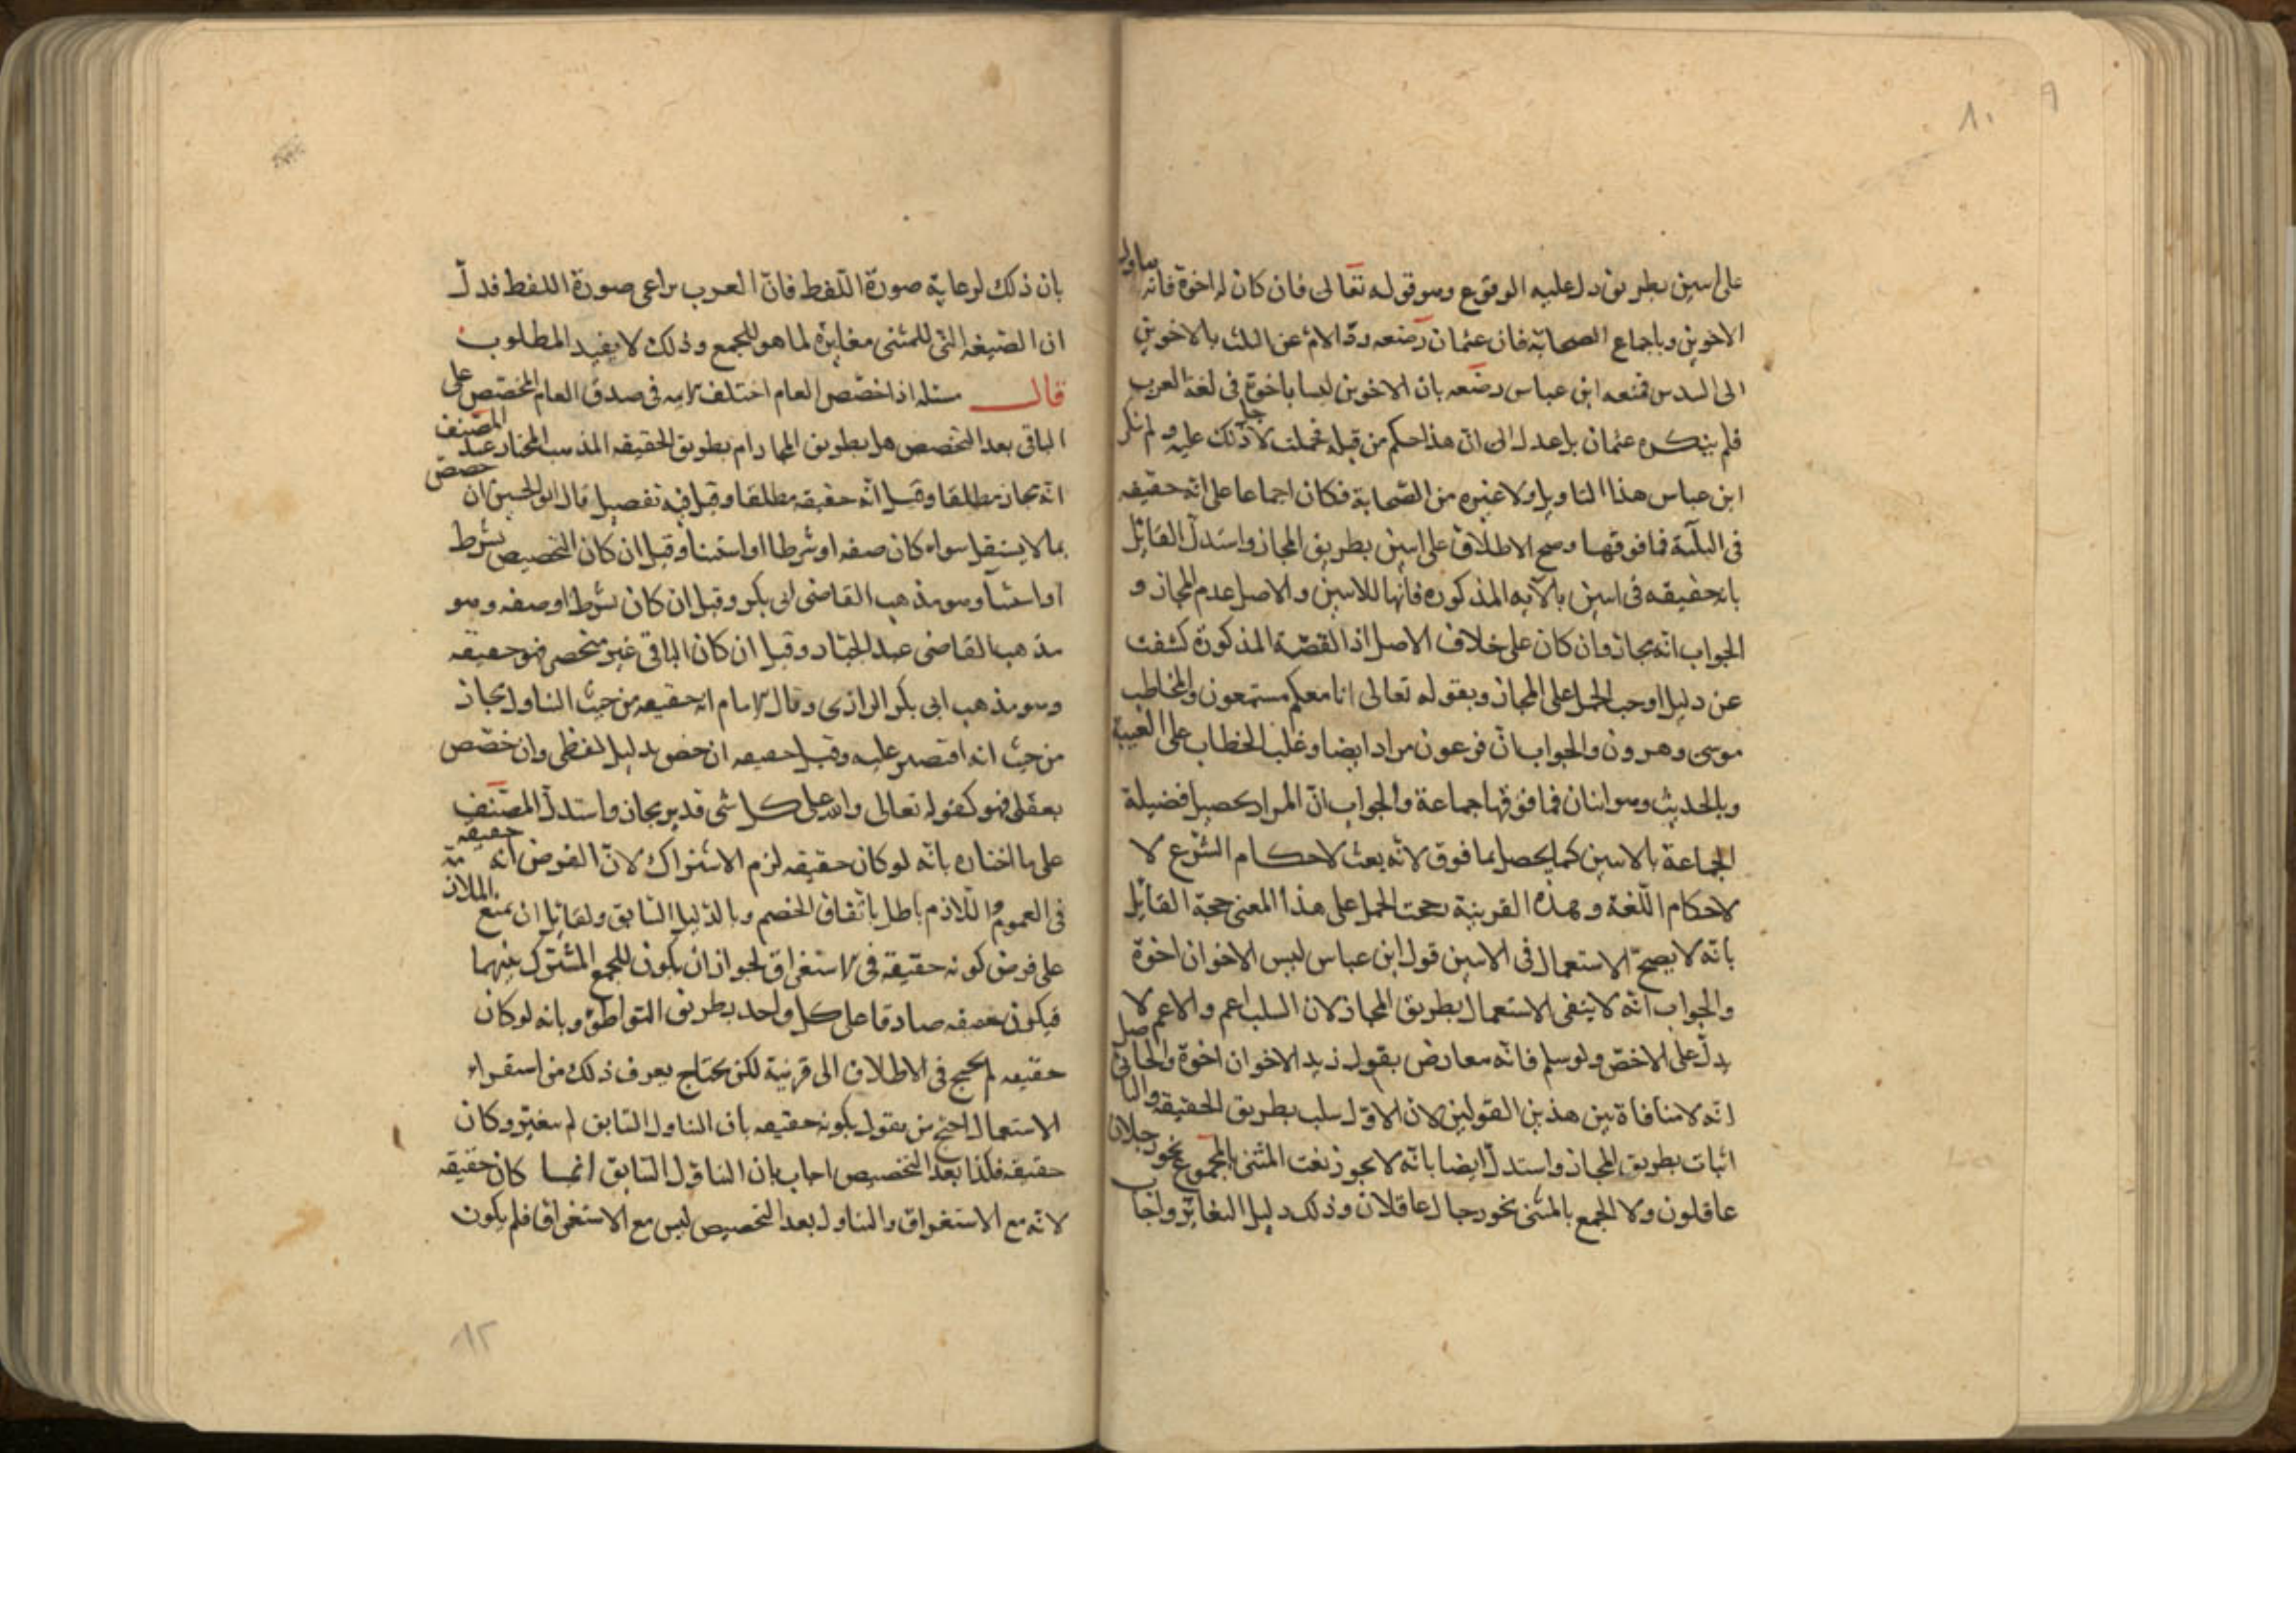 ١٠ ٩
على اسين بطريق دل عليه الوقوع وهو قوله تعالى فان كان له اخوة فانه يتناول
الاخوين وباجماع الصحابة فان عثمان رضعه ردّ الامّ عن الثلث بالاخوين
الى السدس فمنعه ابن عباس رضعه بان الاخوين ليسا باخوة في لغة العرب
فلم ينكره عثمان بل عدل الى انّ هذا حكم من قبله لاجل ذلك عليه ولم ينكر
ابن عباس هذا التاويل ولا غيره من الصّحابة فكان اجماعا على انّه حقيقه
في الثلثة فما فوقها وصح الاطلاق على اسين بطريق المجاز واستدلّ القائل
بانه حقيقه في اسين بالآيه المذكوره فانها للاسين والاصل عدم المجاز و
الجواب انّه مجاز وان كان على خلاف الاصل اذ القصّة المذكورة كشفت
عن دليل اوجب الحمل على المجاز وبقوله تعالى انا معكم مستمعون والمخاطب
موسى وهرون والجواب انّ فرعون مراد ايضا وغلب الخطاب على الغيبة
وبالحديث وهو اثنان فما فوقها جماعة والجواب انّ المراد يحصل فضيلة
الجماعة بالاسين كما يحصل بما فوق لانّه بعث لاحكام الشرع لا
لاحكام اللّغة وبهذه القرينة رجحت الحمل على هذا المعنى حجة القائل
بانّه لا يصحّ الاستعمال في الاسين قول ابن عباس ليس الاخوان اخوة
والجواب انّه لا ينفى الاستعمال بطريق المجاز لان السلب اعم والاعم لا
يدلّ على الاخصّ ولو سلم فانّه معارض بقول زيد الاخوان اخوة والحاصل
انّه لا منافاة بين هذين القولين لان الاوّل سلب بطريق الحقيقه والثاني
اثبات بطريق المجاز واستدلّ ايضا بانّه لا يجوز نعت المثنى بالمجموع نحو رجلان
عاقلون ولا الجمع بالمثنى نحو رجال عاقلان وذلك دليل التغاير واجاب
بان ذلك لرعاية صورة اللّفظ فانّ العرب يراعى صورة اللفظ فدلّ
ان الصيغه التي للمثنى مغايرة لما هو للجمع وذلك لا يفيد المطلوب
قال مسئله اذا خصّص العام اختلف الايمه في صدق العام المخصّص على
الباقي بعد التخصص هل بطريق المجاز ام بطريق الحقيقه المذهب المختار عند المصنف
انّه مجاز مطلقا وقيل انّه حقيقه مطلقا وقيل فيه تفصيل قال ابو الحسين ان خصص
بما لا يستقل سواء كان صفه او شرطا او استثنا وقيل ان كان التخصيص بشرط
او استثنا وهو مذهب القاضى ابى بكر وقيل ان كان بشرط او صفه وهو
مذهب القاضى عبد الجبّار وقيل ان كان الباقي غير منحصر فهو حقيقه
وهو مذهب ابى بكر الرازى وقال الامام انه حقيقه من حيث التناول مجاز
من حيث انه اقتصر عليه وقيل حقيقه ان خص بدليل لفظى وان خصّص
بعقلى فهو كقوله تعالى والله على كل شى قدير مجاز واستدلّ المصنّف
على ما اختاره بانّه لو كان حقيقه لزم الاشتراك لانّ الفرض انّه حقيقه
في العموم واللّازم باطل باتفاق الخصم وبالدليل السّابق ولقائل ان يمنع الملازمة
على فرض كونه حقيقه في الاستغراق لجواز ان يكون للجمع المشترك بينهما
فيكون حقيقه صادقا على كل واحد بطريق التواطؤ وبانه لو كان
حقيقه لم يحتج في الاطلاق الى قرينة لكن يحتاج يعرف ذلك من استقراء
الاستعمال احتج من يقول بكونه حقيقه بان التناول السّابق لم يتغير وكان
حقيقه فكذا بعد التخصيص اجاب بان التناول السّابق انما كان حقيقه
لانه مع الاستغراق والتناول بعد التخصيص ليس مع الاستغراق فلم يكون
١٢